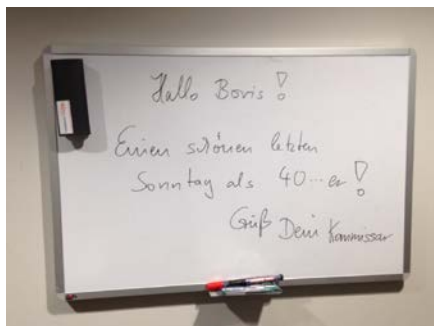 Hallo Boris!
Einen schönen letzten
Sonntag als 40...er!
Gruß Dein Kommissar